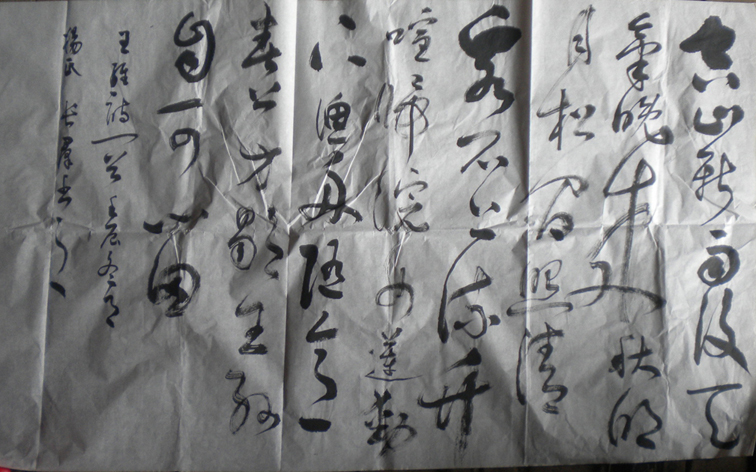 空山新雨後天
氣晚来秋明
月松間照清
泉石上流竹
喧歸浣女蓮動
下漁舟隨意
春芳歇王孫
自可留
王維詩一首壬辰冬月
楊氏